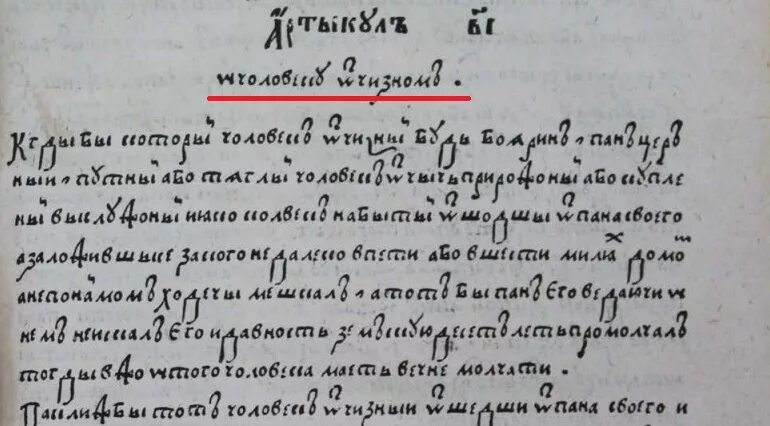 Артыкулъ ві
ѡ чоловеку ѿчизномъ .
Кгды бы который чоловекъ ѿчизный будь бояринъ, панъцер
ный, путный або тяглый чоловекъ ѿчычъ прирожоный або купле
ный выслужоный и яко колвекъ набытый ѿшодшы ѿ пана своего
а заложившысе за кого недалеко в пети або в шести миляⷯ домоⷨ
а не по наймомъ ходечы мешкалъ, а тотъ бы панъ Его ведаючи ѡ
немъ неискалъ Его и давность земъскую десеть летъ промолчалъ
тогды вжо ѡ того чоловека маеть вечне молчати .
Паклижбы тотъ чоловекъ ѿчизный ѿшедши ѿ пана своего и